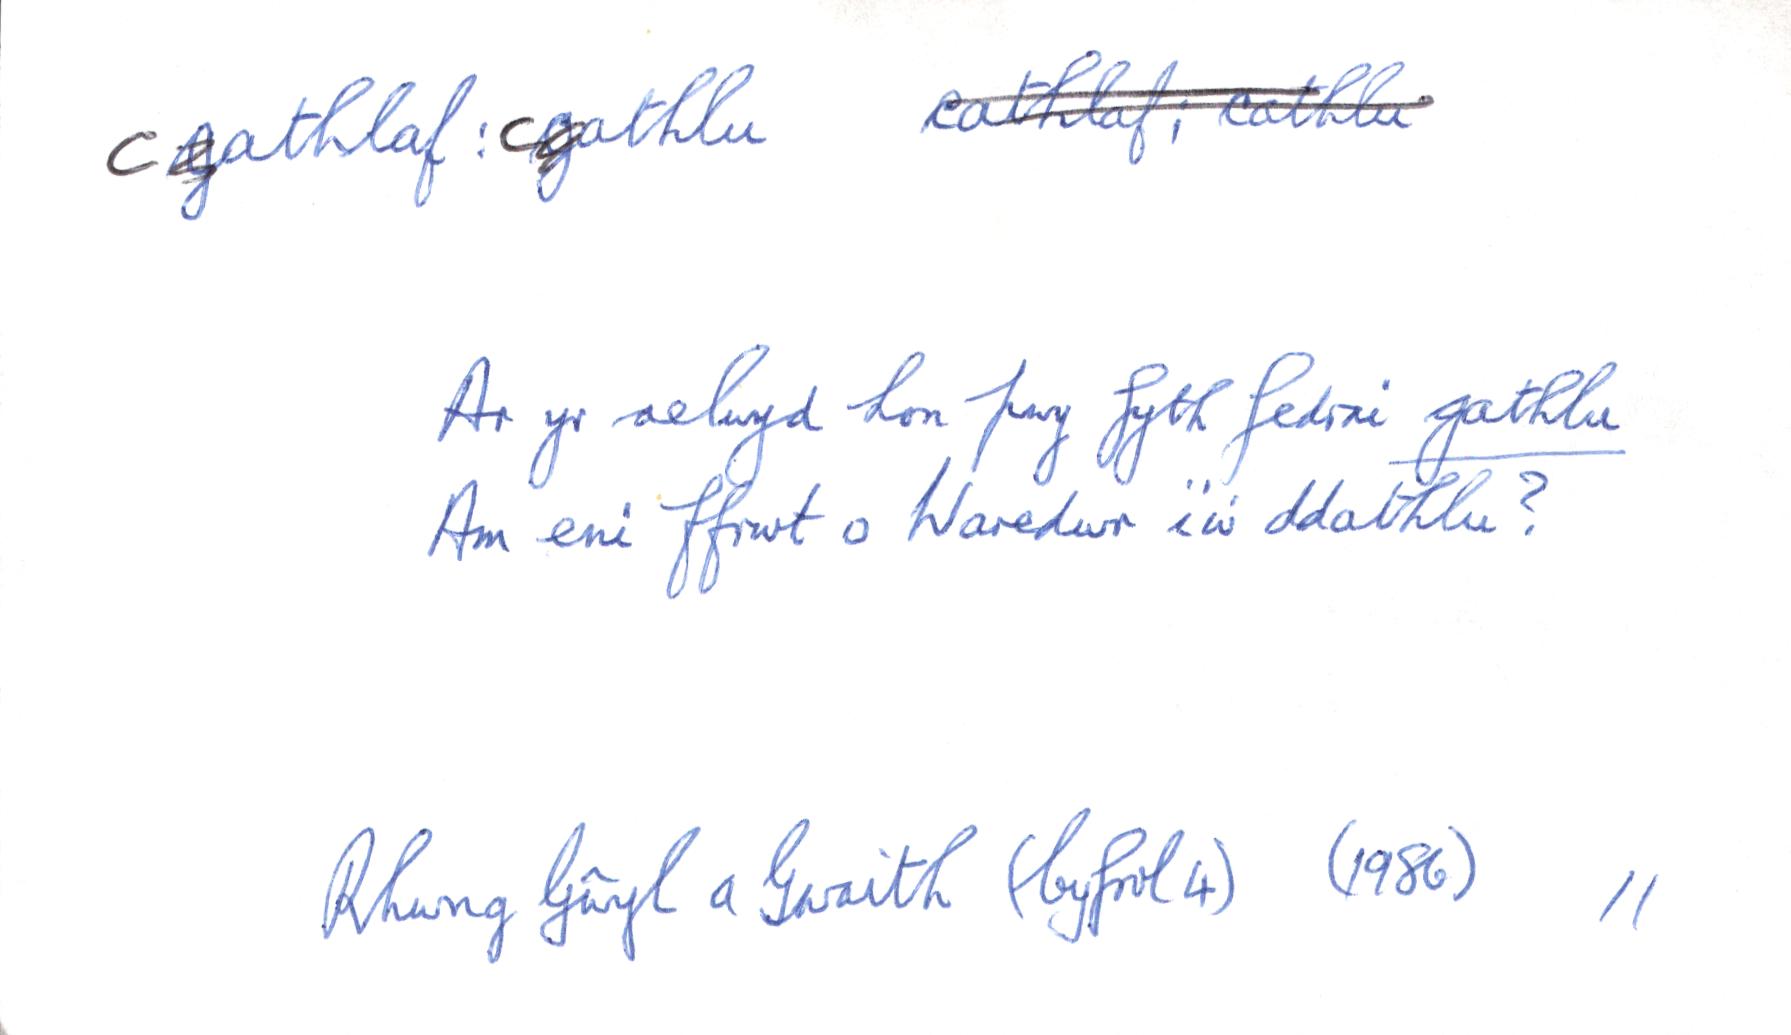 cathlaf : cathlu cathlaf; cathlu
Ar yr aelwyd hon pwy fyth fedrai gathlu
Am eni ffrwt o Waredwr i'w ddathlu?
Rhwng Gŵyl a Gwaith (cyfrol 4) (1986) 11